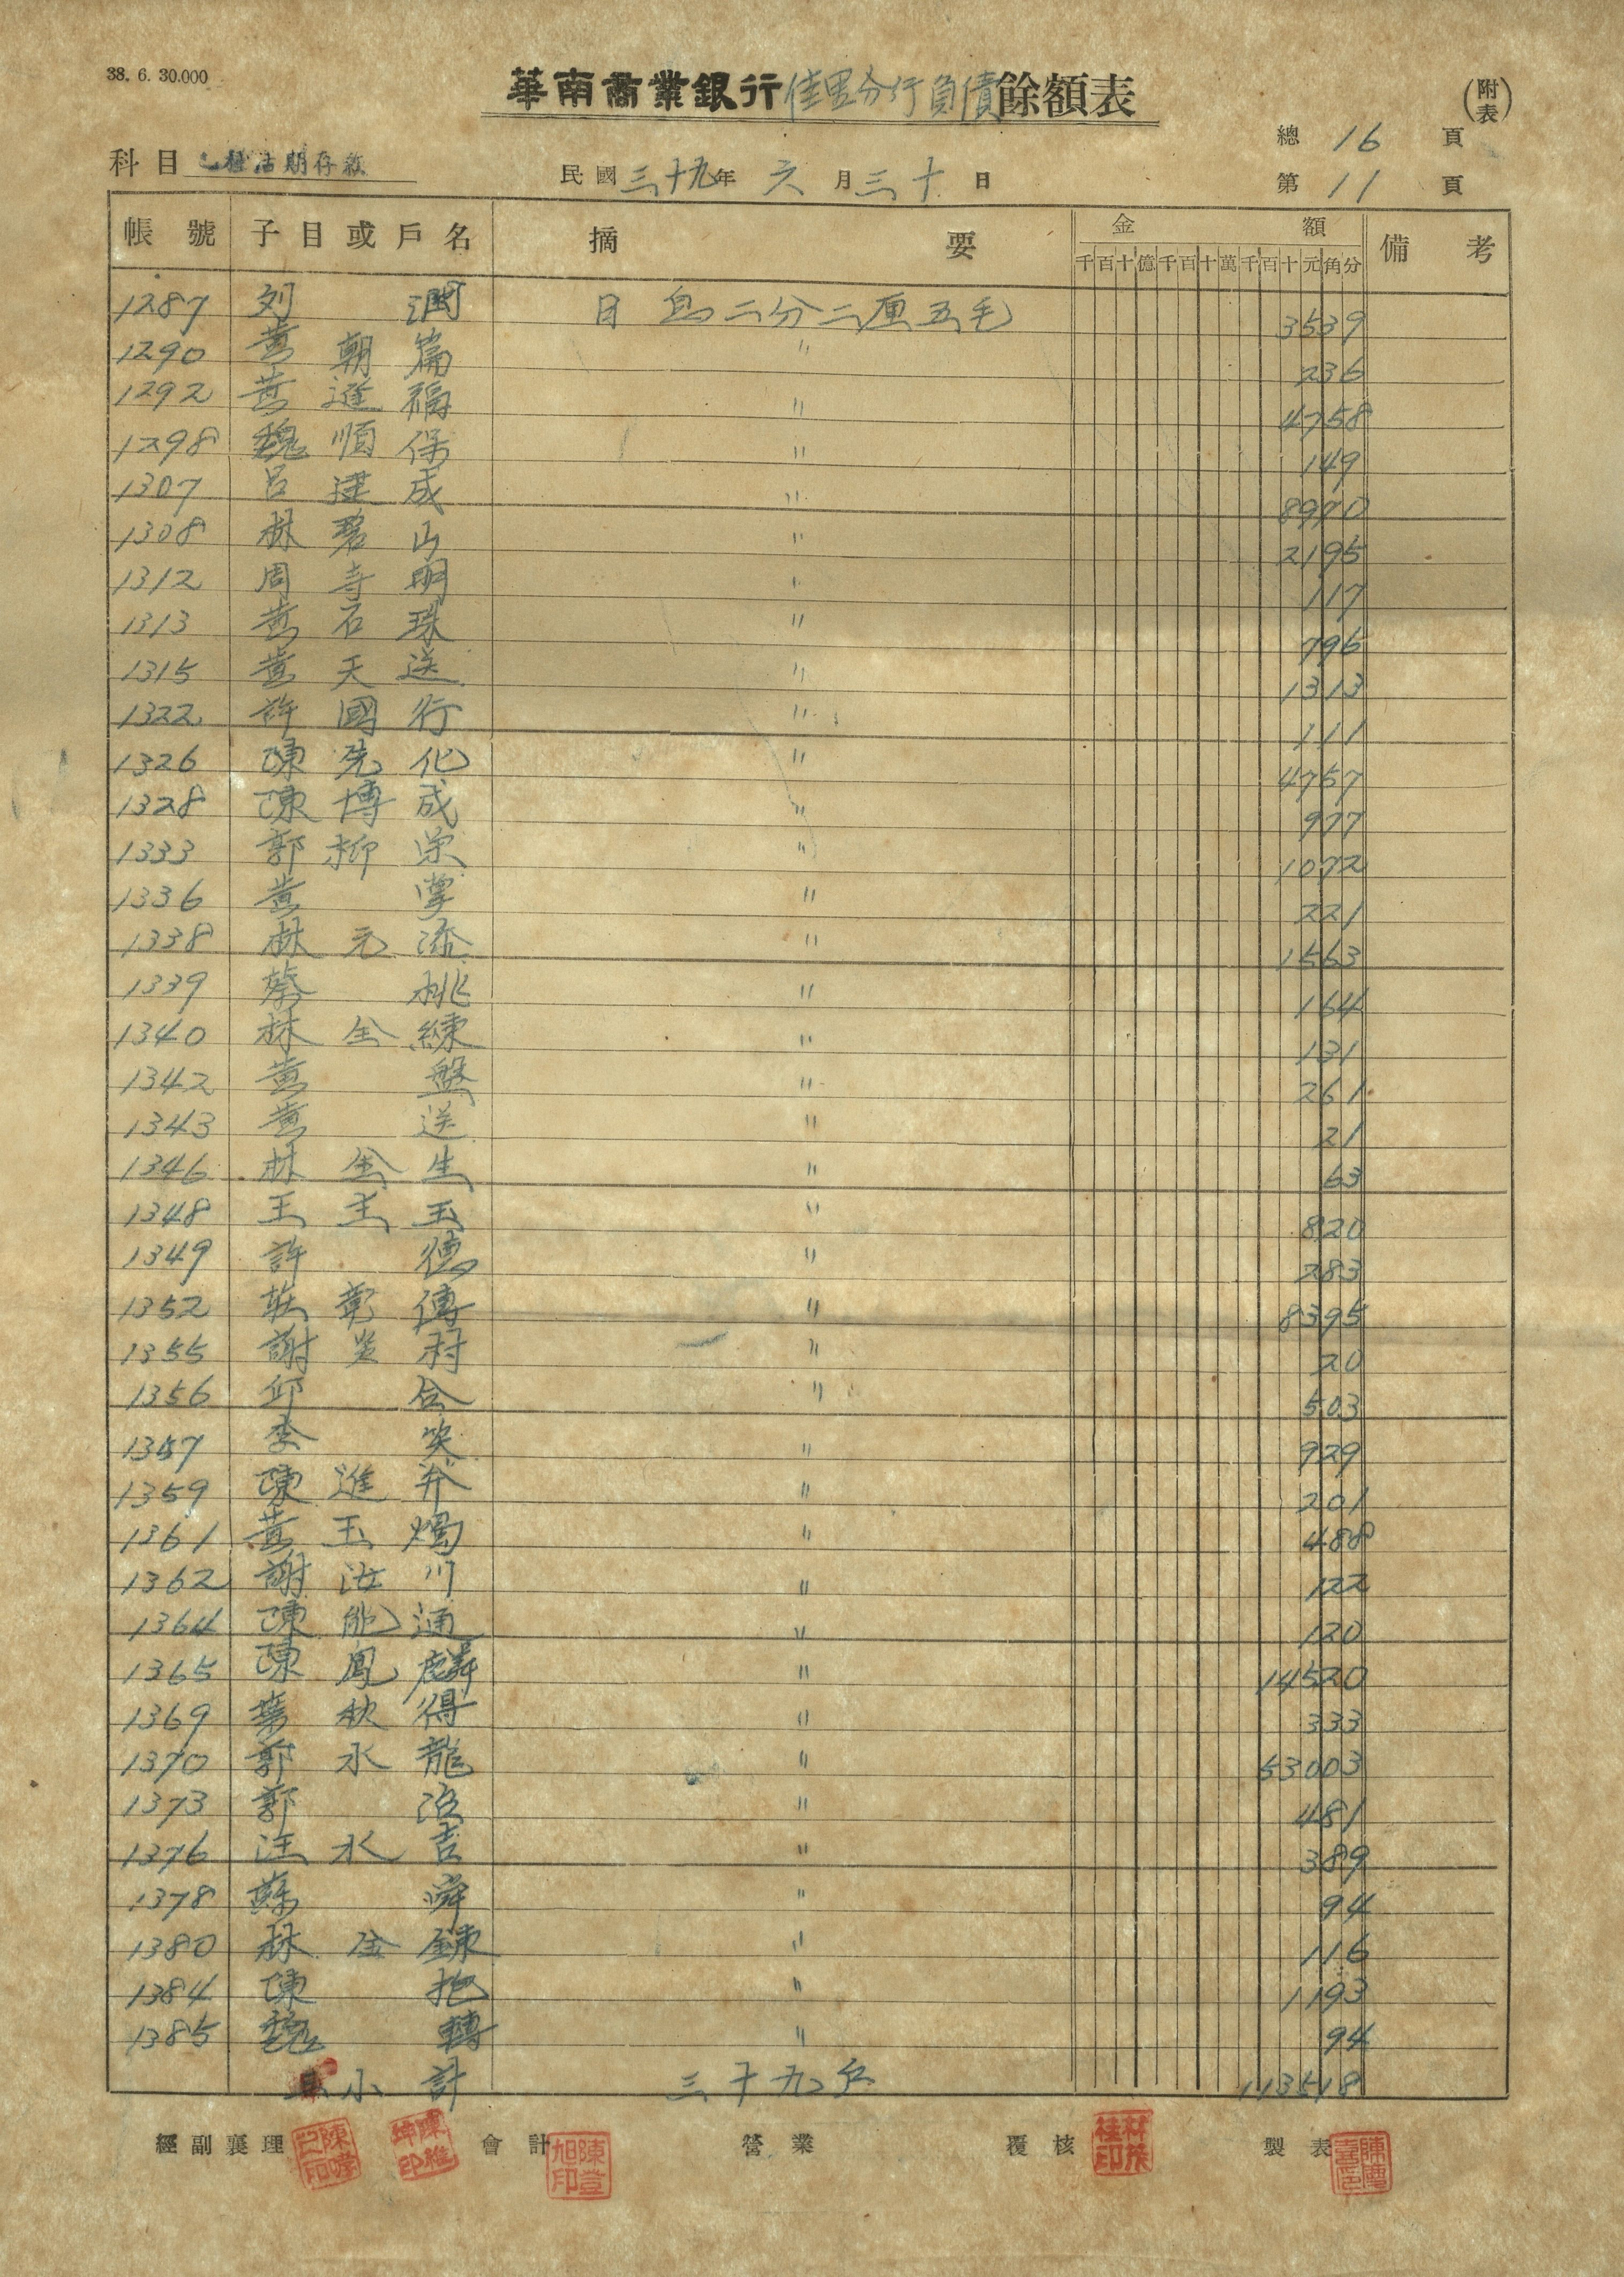 38. 6. 30.000
華南商業銀行佳里分行負債餘額表
(附表)
總 16 頁
科目 乙種活期存款
民國三十九年 六 月三十 日
第 11 頁
帳號 子目或戶名 摘要 金額 備考
千百十億千百十萬千百十元角分
1287 刘 潤 日息二分二厘五毛 3539
1290 黃朝篇 〃 236
1292 黃進福 〃 4758
1298 魏順保 〃 149
1307 呂建成 〃 8970
1308 林碧山 〃 2195
1312 周寺明 〃 117
1313 黃石珠 〃 796
1315 黃天送 〃 1313
1322 許國行 〃 111
1326 陳先化 〃 4757
1328 陳博成 〃 977
1333 郭柳栄 〃 1072
1336 黃 掌 〃 221
1338 林元添 〃 1563
1339 蔡 桃 〃 164
1340 林全練 〃 131
1342 黃 盤 〃 261
1343 黃 送 〃 21
1346 林金生 〃 63
1348 王 玉 〃 820
1349 許 德 〃 283
1352 莊彰傳 〃 8395
1355 謝炎村 〃 20
1356 邱 合 〃 503
1357 李 笑 〃 929
1359 陳進弁 〃 201
1361 黃玉燭 〃 488
1362 謝汝川 〃 122
1364 陳能通 〃 120
1365 陳鳳麟 〃 14520
1369 葉欽得 〃 333
1370 郭水龍 〃 53003
1373 郭 〃 481
1376 汪水吉 〃 389
1378 蘇 舜 〃 94
1380 林金鍊 〃 116
1384 陳 抱 〃 1193
1385 魏 轉 〃 94
小計 三十九戶 113518
經副襄理 會計 營業 覆核 製表